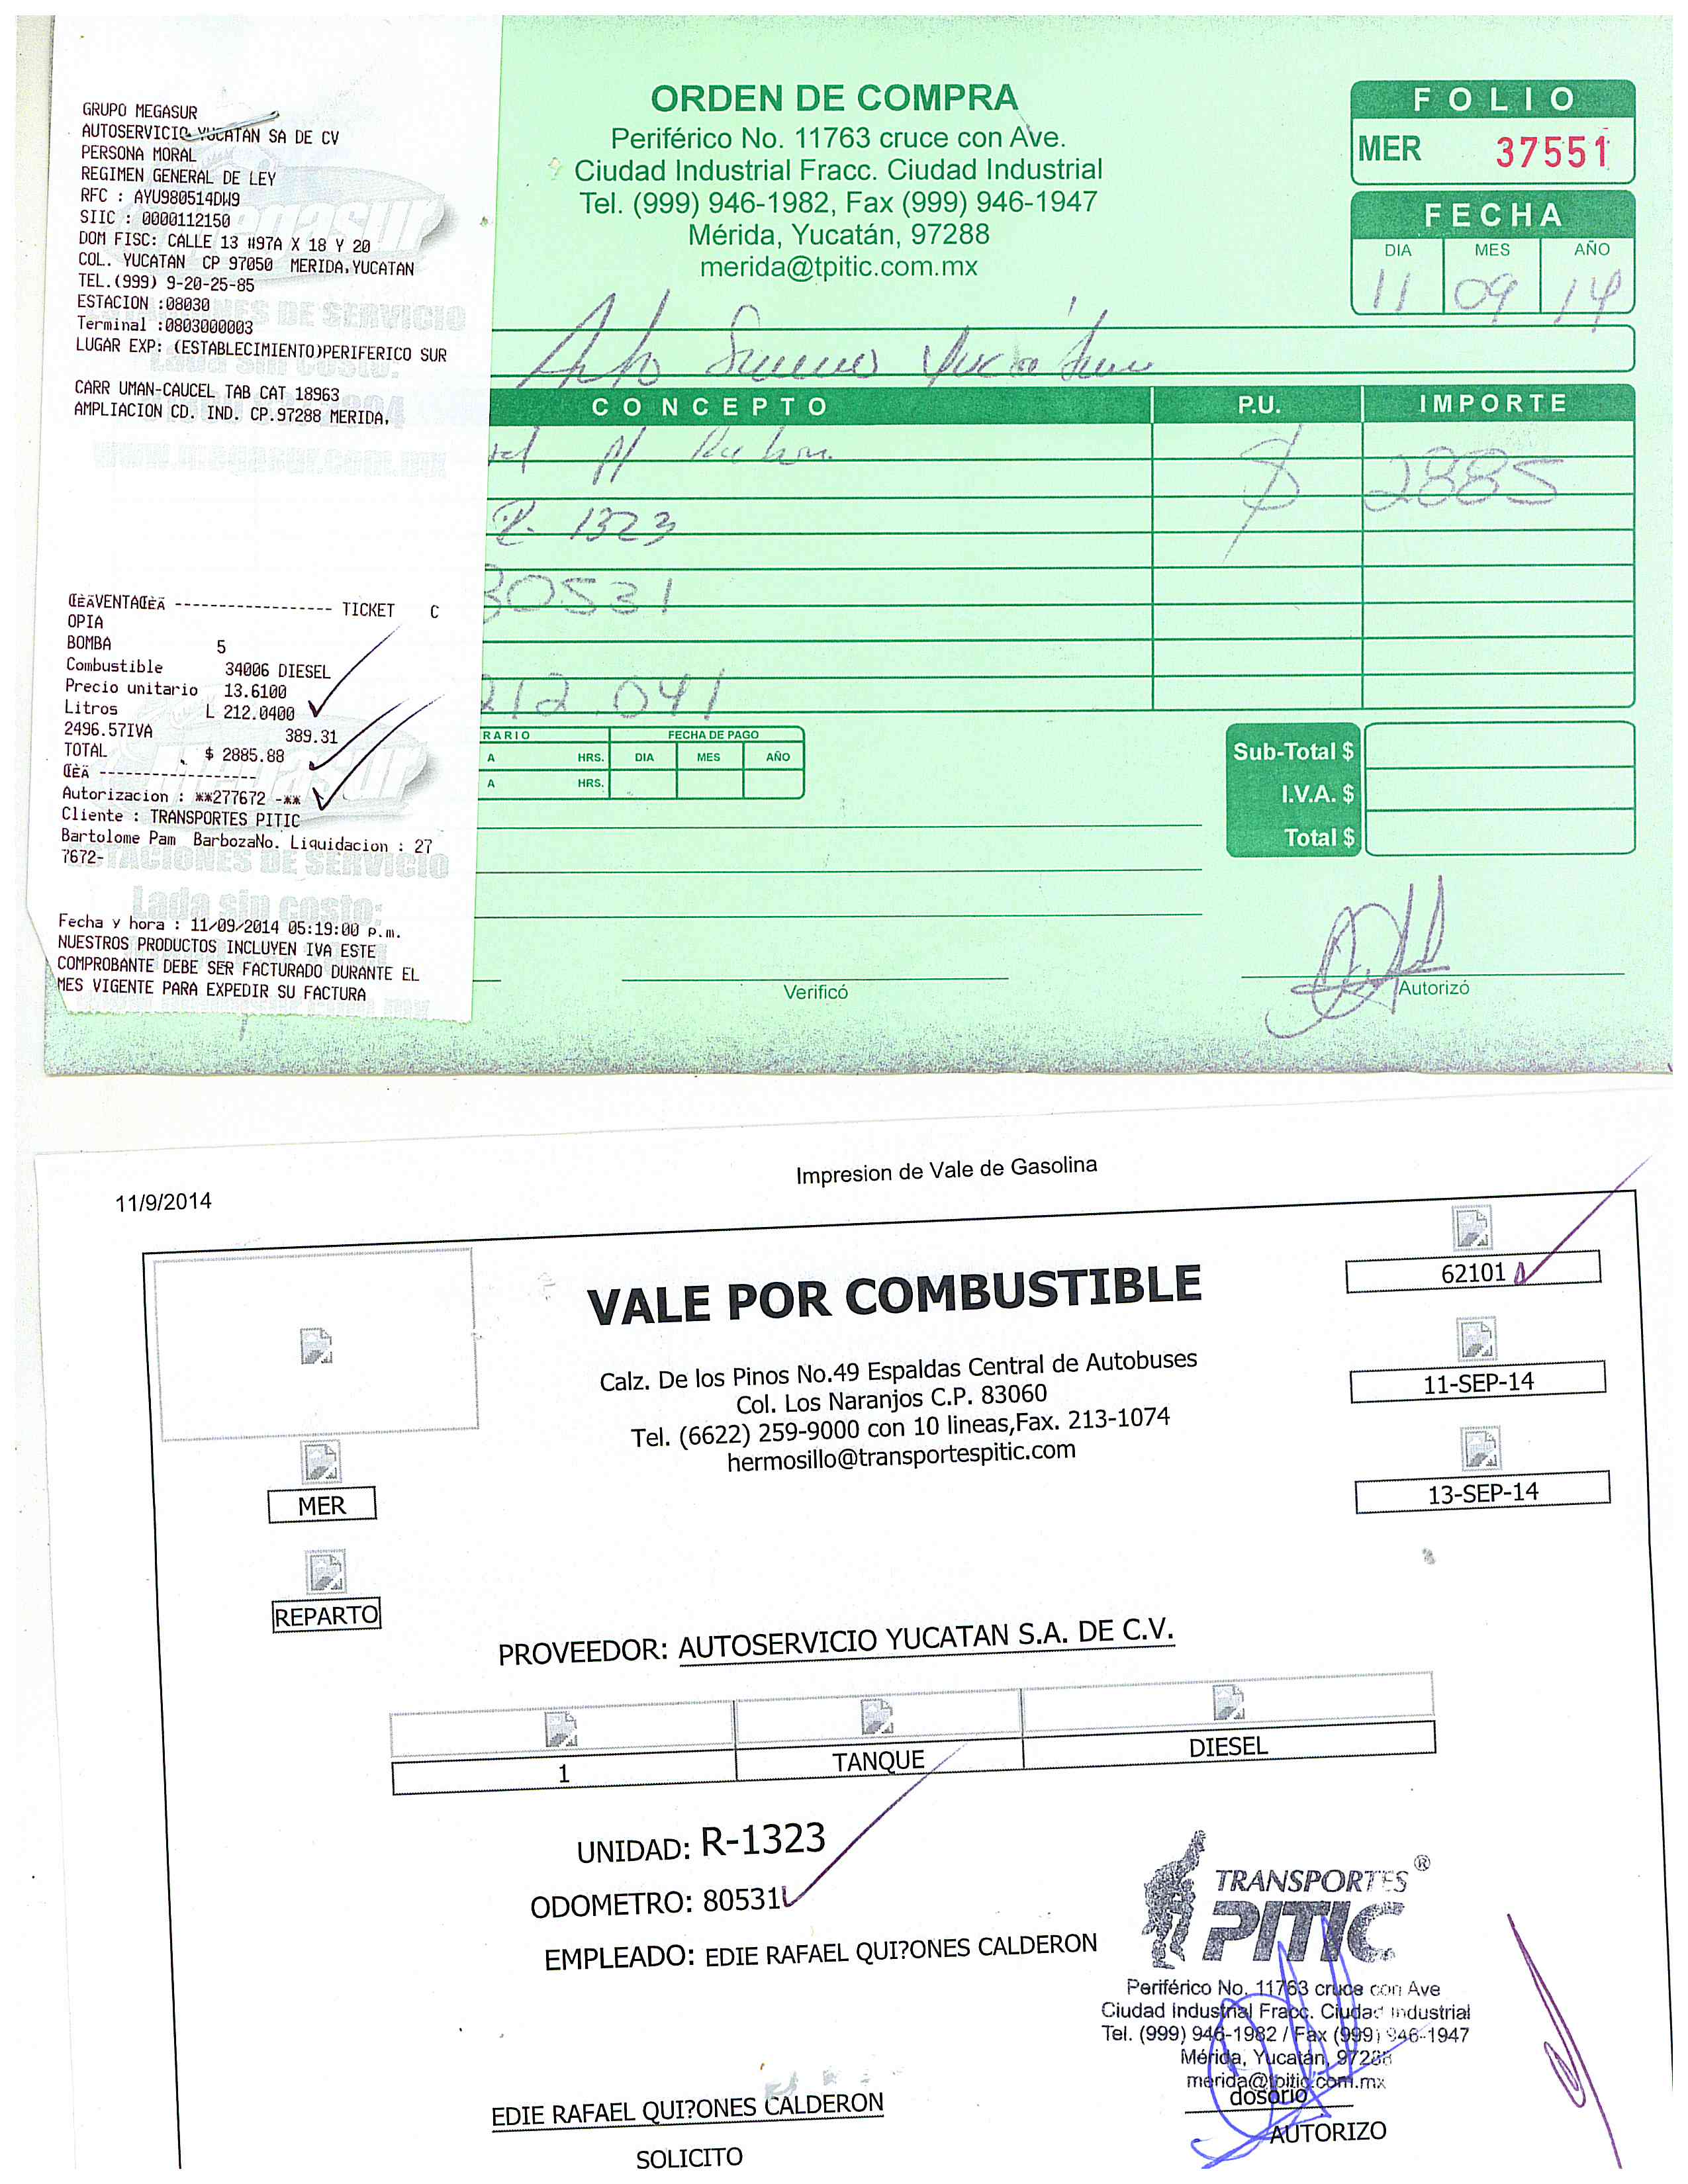 GRUPO MEGASUR
AUTOSERVICIO YUCATAN SA DE CV
PERSONA MORAL
REGIMEN GENERAL DE LEY
RFC : AYU980514DW9
SIIC : 0000112150
DOM FISC: CALLE 13 #97A X 18 Y 20
COL. YUCATAN CP 97050 MERIDA,YUCATAN
TEL.(999) 9-20-25-85
ESTACION :08030
Terminal :0803000003
LUGAR EXP: (ESTABLECIMIENTO)PERIFERICO SUR
CARR UMAN-CAUCEL TAB CAT 18963
AMPLIACION CD. IND. CP.97288 MERIDA,
ŒÈÄVENTAŒÈÄ ---------------- TICKET C
OPIA
BOMBA 5
Combustible 34006 DIESEL
Precio unitario 13.6100
Litros L 212.0400
2496.57IVA 389.31
TOTAL $ 2885.88
ŒÈÄ ------------------
Autorizacion : **277672 -**
Cliente : TRANSPORTES PITIC
Bartolome Pam BarbozaNo. Liquidacion : 27
7672-
Fecha y hora : 11/09/2014 05:19:00 p.m.
NUESTROS PRODUCTOS INCLUYEN IVA ESTE
COMPROBANTE DEBE SER FACTURADO DURANTE EL
MES VIGENTE PARA EXPEDIR SU FACTURA
megasur
ESTACIONES DE SERVICIO
Lada sin costo:
www.megasur.com.mx
ORDEN DE COMPRA
Periférico No. 11763 cruce con Ave.
Ciudad Industrial Fracc. Ciudad Industrial
Tel. (999) 946-1982, Fax (999) 946-1947
Mérida, Yucatán, 97288
merida@tpitic.com.mx
FOLIO
MER 37551
FECHA
DIA MES AÑO
11 09 14
CONCEPTO P.U. IMPORTE
$ 2885
R- 1323
80531
212.041
RARIO FECHA DE PAGO
A HRS. DIA MES AÑO
A HRS.
Sub-Total $
I.V.A. $
Total $
Verificó
Autorizó
Impresion de Vale de Gasolina
11/9/2014
VALE POR COMBUSTIBLE
62101
Calz. De los Pinos No.49 Espaldas Central de Autobuses
Col. Los Naranjos C.P. 83060
Tel. (6622) 259-9000 con 10 lineas,Fax. 213-1074
hermosillo@transportespitic.com
11-SEP-14
13-SEP-14
MER
REPARTO
PROVEEDOR: AUTOSERVICIO YUCATAN S.A. DE C.V.
1 TANQUE DIESEL
UNIDAD: R-1323
ODOMETRO: 80531
EMPLEADO: EDIE RAFAEL QUI?ONES CALDERON
TRANSPORTES ®
PITIC
Periférico No. 11763 cruce con Ave
Ciudad Industrial Fracc. Ciudad Industrial
Tel. (999) 946-1982 / Fax (999) 946-1947
Mérida, Yucatán, 97288
merida@tpitic.com.mx
dosorio
AUTORIZO
EDIE RAFAEL QUI?ONES CALDERON
SOLICITO